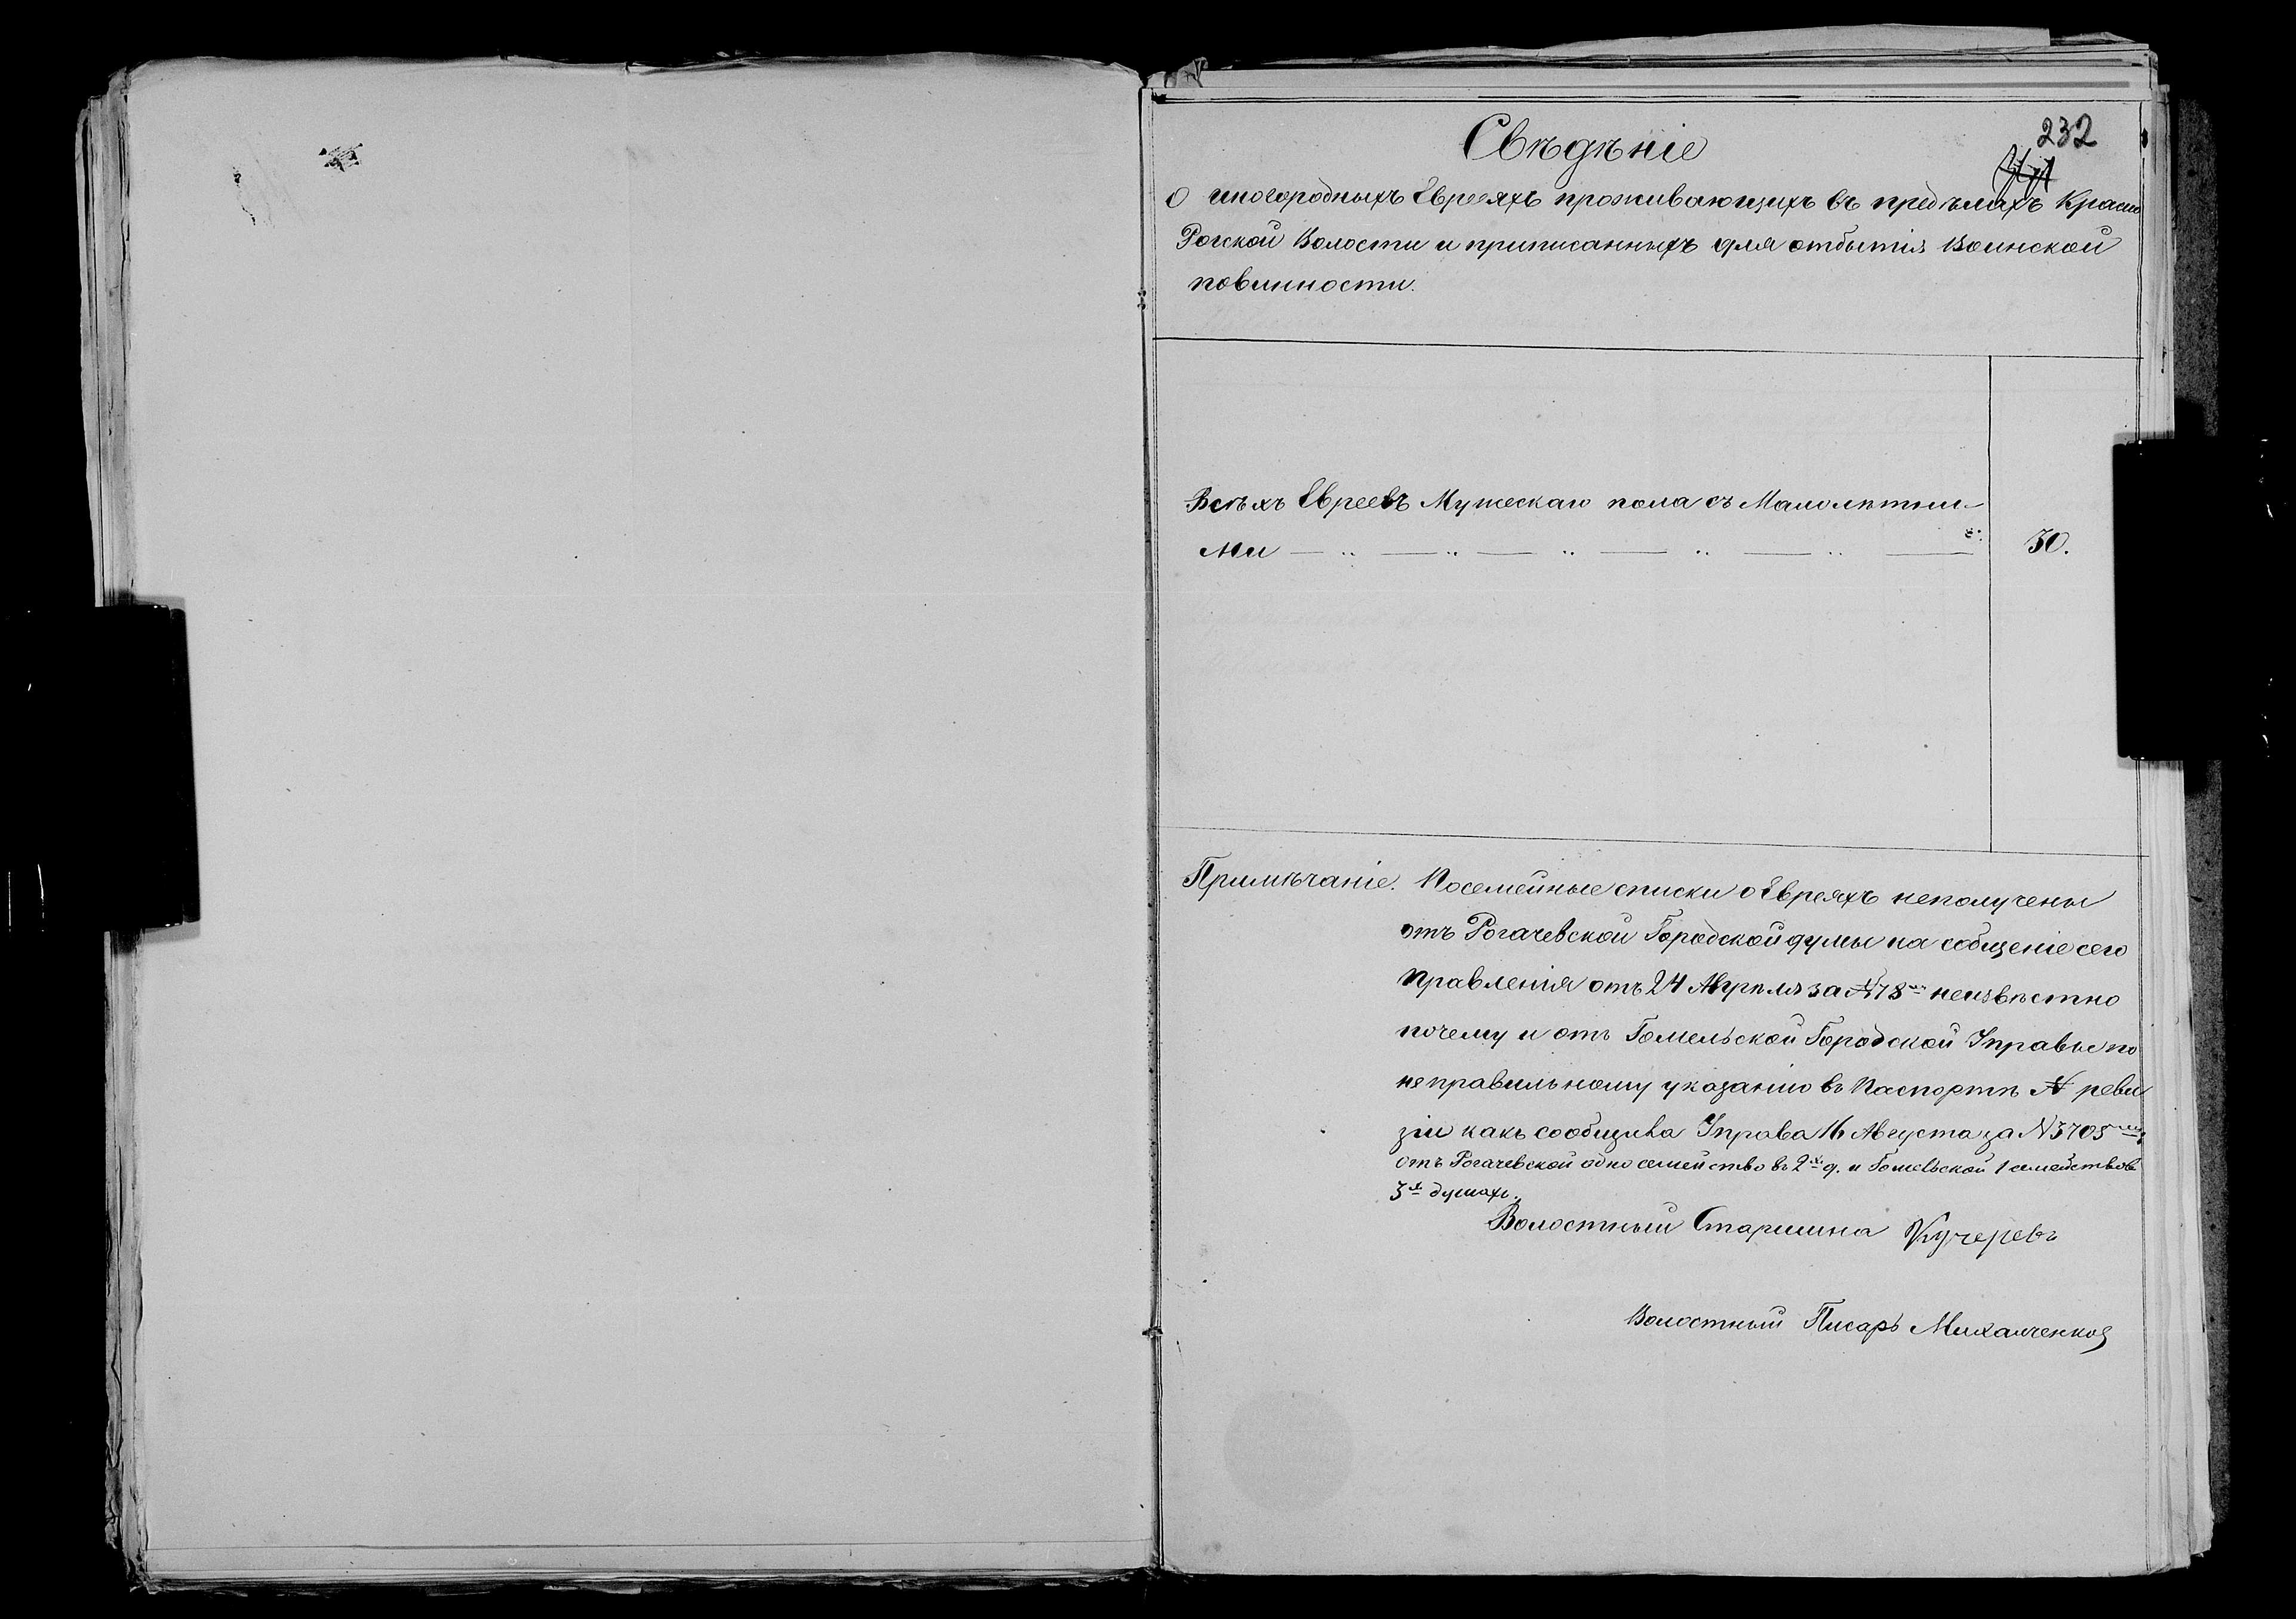 232
Свѣдѣніе
о иногородныхъ Евреяхъ проживающихъ въ предѣлахъ Красно
Рогской Волости и приписанныхъ для отбытія Воинской
повинности.
Всѣхъ Евреевъ Мужескаго пола съ Малолѣтни-
ми — „ — „ — „ — „ — „ — 30.
Примѣчаніе. Посемейные списки о Евреяхъ неполучены
отъ Рогачевской Городской думы на собщеніе сего
Правленія отъ 24 Апрѣля за № 78 неизвѣстно
почему и отъ Гомельской Городской Управы по
неправильному указанію въ Паспортѣ № реви
зіи какъ сообщила Управа 16 Августа за № 3705
отъ Рогачевской одно семейство въ 2х д. и Гомельской 1 семейство въ
3х душахъ.
Волостный Старшина Кучеревъ
Волостный Писарь Михалченко